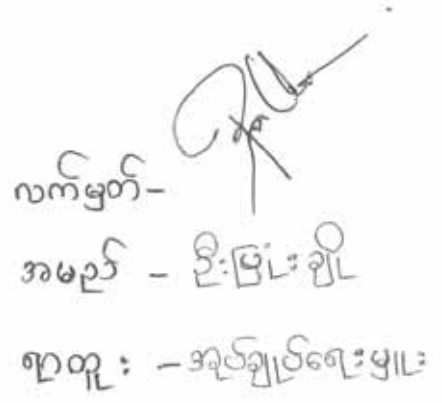 လက်မှတ်-
အမည် - ဦးမြုံးချို
ရာထူး - အုပ်ချုပ်ရေးမှူး